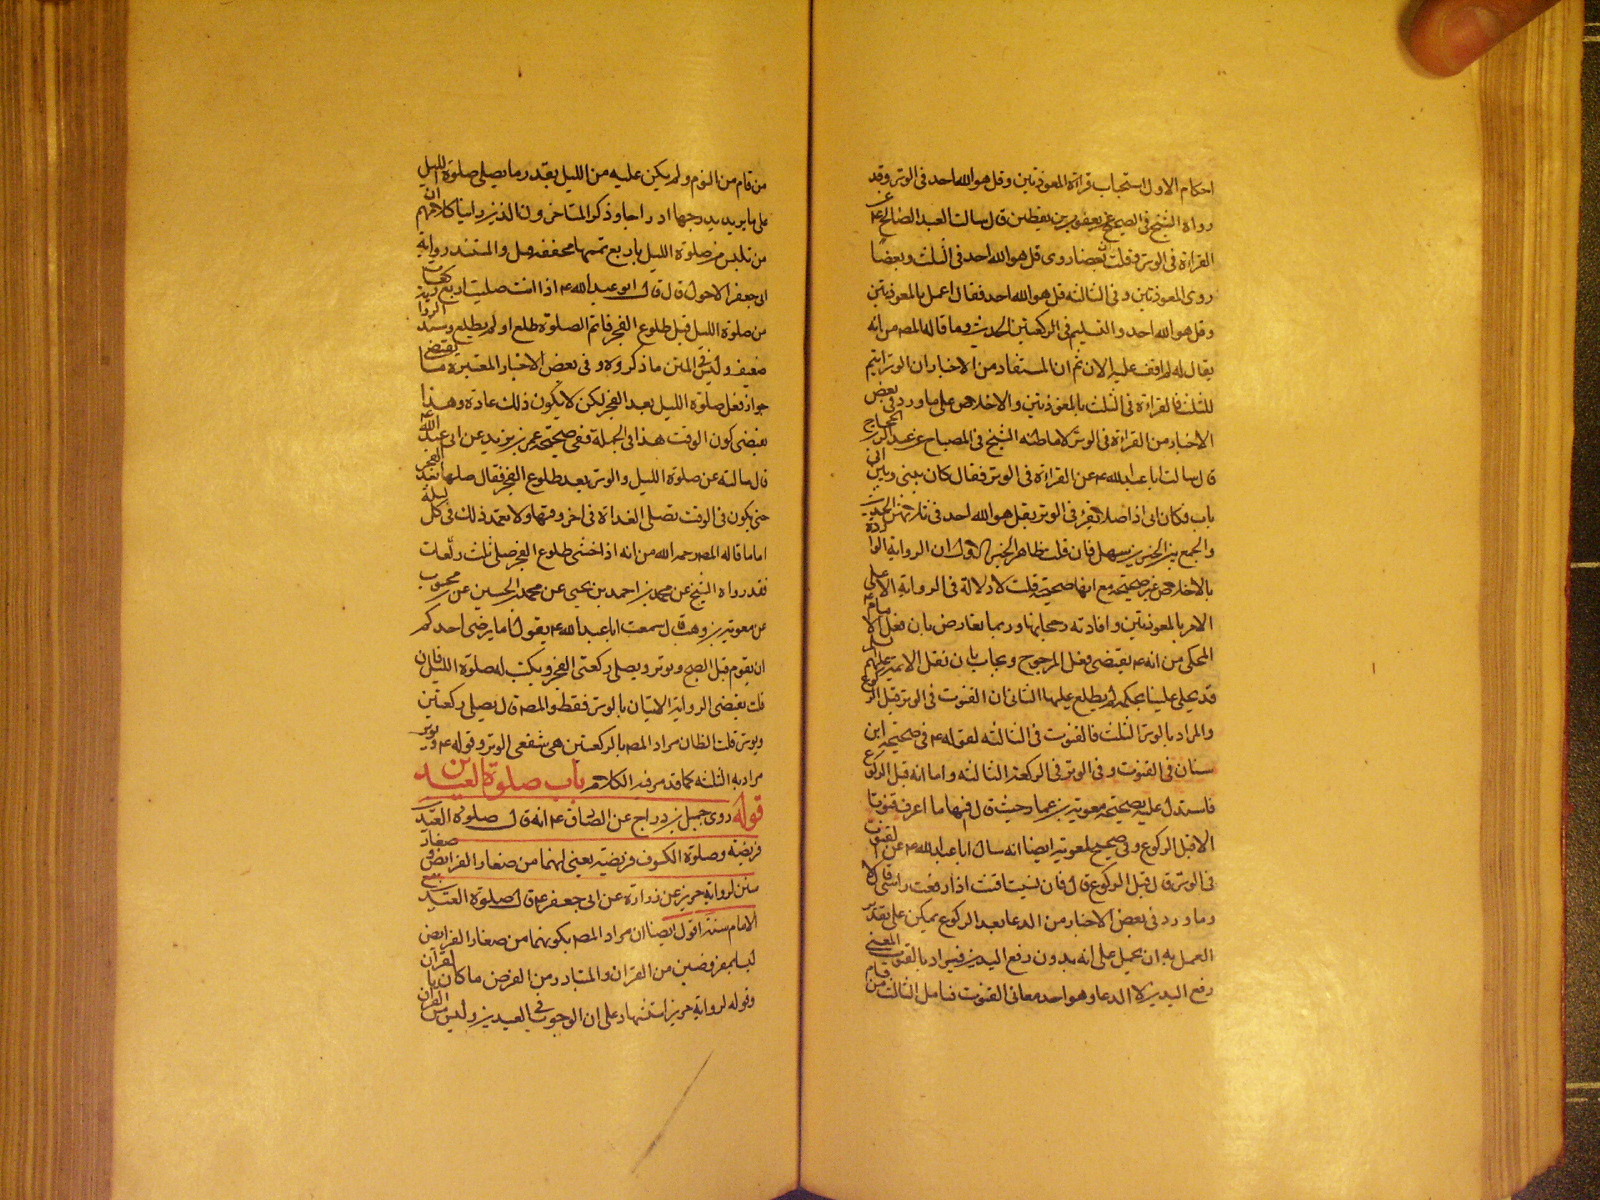 احكام الاول استحباب قراءة المعوذتين وقل هو الله احد فى الوتر وقد
رواه الشيخ فى الصحيح عن يعقوب بن يقطين قال سالت العبد الصالح ع عن
القراءة فى الوتر وقلت ان بعضا روى قل هو الله احد فى الثلث وبعضا
روى المعوذتين وفى الثالثه قل هو الله احد فقال اعمل بالمعوذتين
وقل هو الله احد والتسليم فى الركعتين الحديث وما قاله المصـ من انه
يقال له لم اقف عليه الان ثم ان المستفاد من الاخبار ان الوتر اسم
للثلث فالقراءة فى الثلث بالمعوذتين والاخلاص على ما ورد فى بعض
الاخبار من القراءة فى الوتر لا ما ظنه الشيخ فى المصباح عن عبد الرحمن بن الحجاج
قال سالت ابا عبد الله ع عن القراءة فى الوتر فقال كان بينى وبين ابى
باب فكان ابى اذا صلا يقرء فى الوتر بقل هو الله احد فى ثلاثتهن الحديث
والجمع بين الخبرين سهل فان قلت ظاهر الخبر الاول ان الرواية الواردة
بالاخلاص غير صحيحة مع انها صحيحة قلت لا دلالة فى الرواية الا على
الامر بالمعوذتين وافادته رجحانها وربما يعارض بان فعل الامام ع
المحكى من انه ع يقتضى فعل المرجوح ويجاب بان نقل الائمة عليهم السلم
قد يخفى علينا حكمه ولم يطلع عليها الثانى ان القنوت فى الوتر قبل الركوع
والمراد بالوتر الثلث فالقنوت فى الثالثه لقوله ع فى صحيحة ابن
سنان فى القنوت وفى الوتر فى الركعة الثالثه واما انه قبل الركوع
فاستدل عليه بصحيحة معوية بن عمار حيث قال فيها ما اعرف قنوتا
الا قبل الركوع وفى صحيح لمعوية ايضا انه سال ابا عبد الله ع عن القنوت
فى الوتر قال قبل الركوع قال فان نسيت اقنت اذا رفعت راسى قال لا
وما ورد فى بعض الاخبار من الدعا بعد الركوع يمكن على تقدير
العمل به ان يحمل على انه بدون رفع اليدين فيراد بالقنوت المعنى
رفع اليدين لا الدعا وهو احد معانى القنوت فتامل الثالث من قام
من قام من النوم ولم يكن عليه من الليل بقدر ما يصلى صلوة الليل
على ما يريد يدرجها ادراجا وذكر المتاخرون الذين راينا كلامهم ان
من تلبس من صلوة الليل باربع تممها مخففه قبل والمستند رواية
ابى جعفر الاحول قال قال ابو عبد الله ع اذا انت صليت اربع ركعات
من صلوة الليل قبل طلوع الفجر فاتم الصلوة طلع او لم يطلع وسند الرواية
ضعيف وليس فى المتن ما ذكروه وفى بعض الاخبار المعتبرة ما يقتضى
جواز فعل صلوة الليل بعد الفجر لكن لا يكون ذلك عادة وهذا
يقتضى كون الوقت هذا فى الجملة ففى صحيحة عمر بن يزيد عن ابى عبد الله ع
قال سالته عن صلوة الليل والوتر بعد طلوع الفجر فقال صلها بعد الفجر
حتى يكون فى الوقت تصلى الغداة فى اخر وقتها ولا تعمد ذلك فى كل ليلة
اما ما قاله المصـ رحمه الله من انه اذا خشى طلوع الفجر صلى ثلث ركعات
فقد رواه الشيخ عن محمد بن احمد بن يحيى عن محمد بن الحسين عن محبوب
عن معوية بن وهب قال سمعت ابا عبد الله ع يقول اما يرضى احدكم
ان يقوم قبل الصبح ويوتر ويصلى ركعتى الفجر ويكتب له صلوة الليل فان
قلت يقتضى الرواية الاتيان بالوتر فقط والمصـ قال يصلى ركعتين
ويوتر قلت الظان مراد المصـ بالركعتين هى شفعى الوتر وقوله ع ويوتر
مراد به الثلثه كما قد مر فيه الكلام باب صلوة العيدين
قوله روى جميل بن دراج عن الصادق ع انه قال صلوة العيد
فريضه وصلوة الكسوف فريضة يعنى انهما من صغار الفرايض وصغار
سنن لرواية حريز عن زرارة عن ابى جعفر ع قال صلوة العيد مع
الامام سنة اقول ايضا ان مراد المصـ بكونهما من صغار الفرايض
ليسا بمفروضين من القران والمتبادر من الفرض ما كان بالقران
وقوله لرواية حريز استشهاد على ان الوجوب فى العيدين وليس من القران